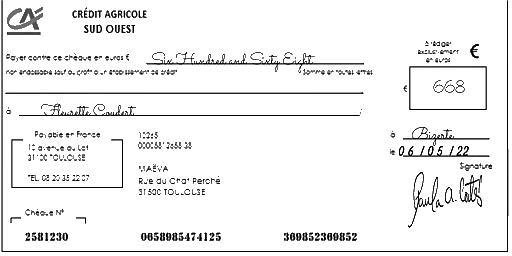 CRÉDIT AGRICOLE
SUD OUEST
Payer contre ce chèque en euros € Six Hundred and Sixty Eight
non endossable sauf au profit d'un établissement de crédit Somme en toutes lettres
à rédiger
exclusivement
en euros
€
€ 668
à Fleurette Coudert
Payable en France
10 avenue du Lot
31100 TOULOUSE
TEL. 08 20 35 22 07
10265
00005812658 38
MAËVA
Rue du Chat Perché
31500 TOULOUSE
à Bizerte
le 06/05/22
Signature
Paula A.
Chèque N°
2581230 0658985474125 369852369852